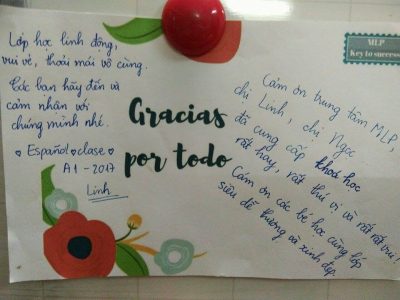 Lớp học linh động,
vui vẻ, thoải mái vô cùng.
Các bạn hãy đến và
cảm nhận với
chúng mình nhé.
♡ Español clase ♡
A1 - 2017
Linh
Gracias
por todo
MLP
Key to success
Cảm ơn trung tâm MLP,
chị Linh, chị Ngọc
đã cung cấp khoá học
rất hay, rất thú vị và rất rất vui!
Cảm ơn các bé học cùng lớp
siêu dễ thương và xinh đẹp.